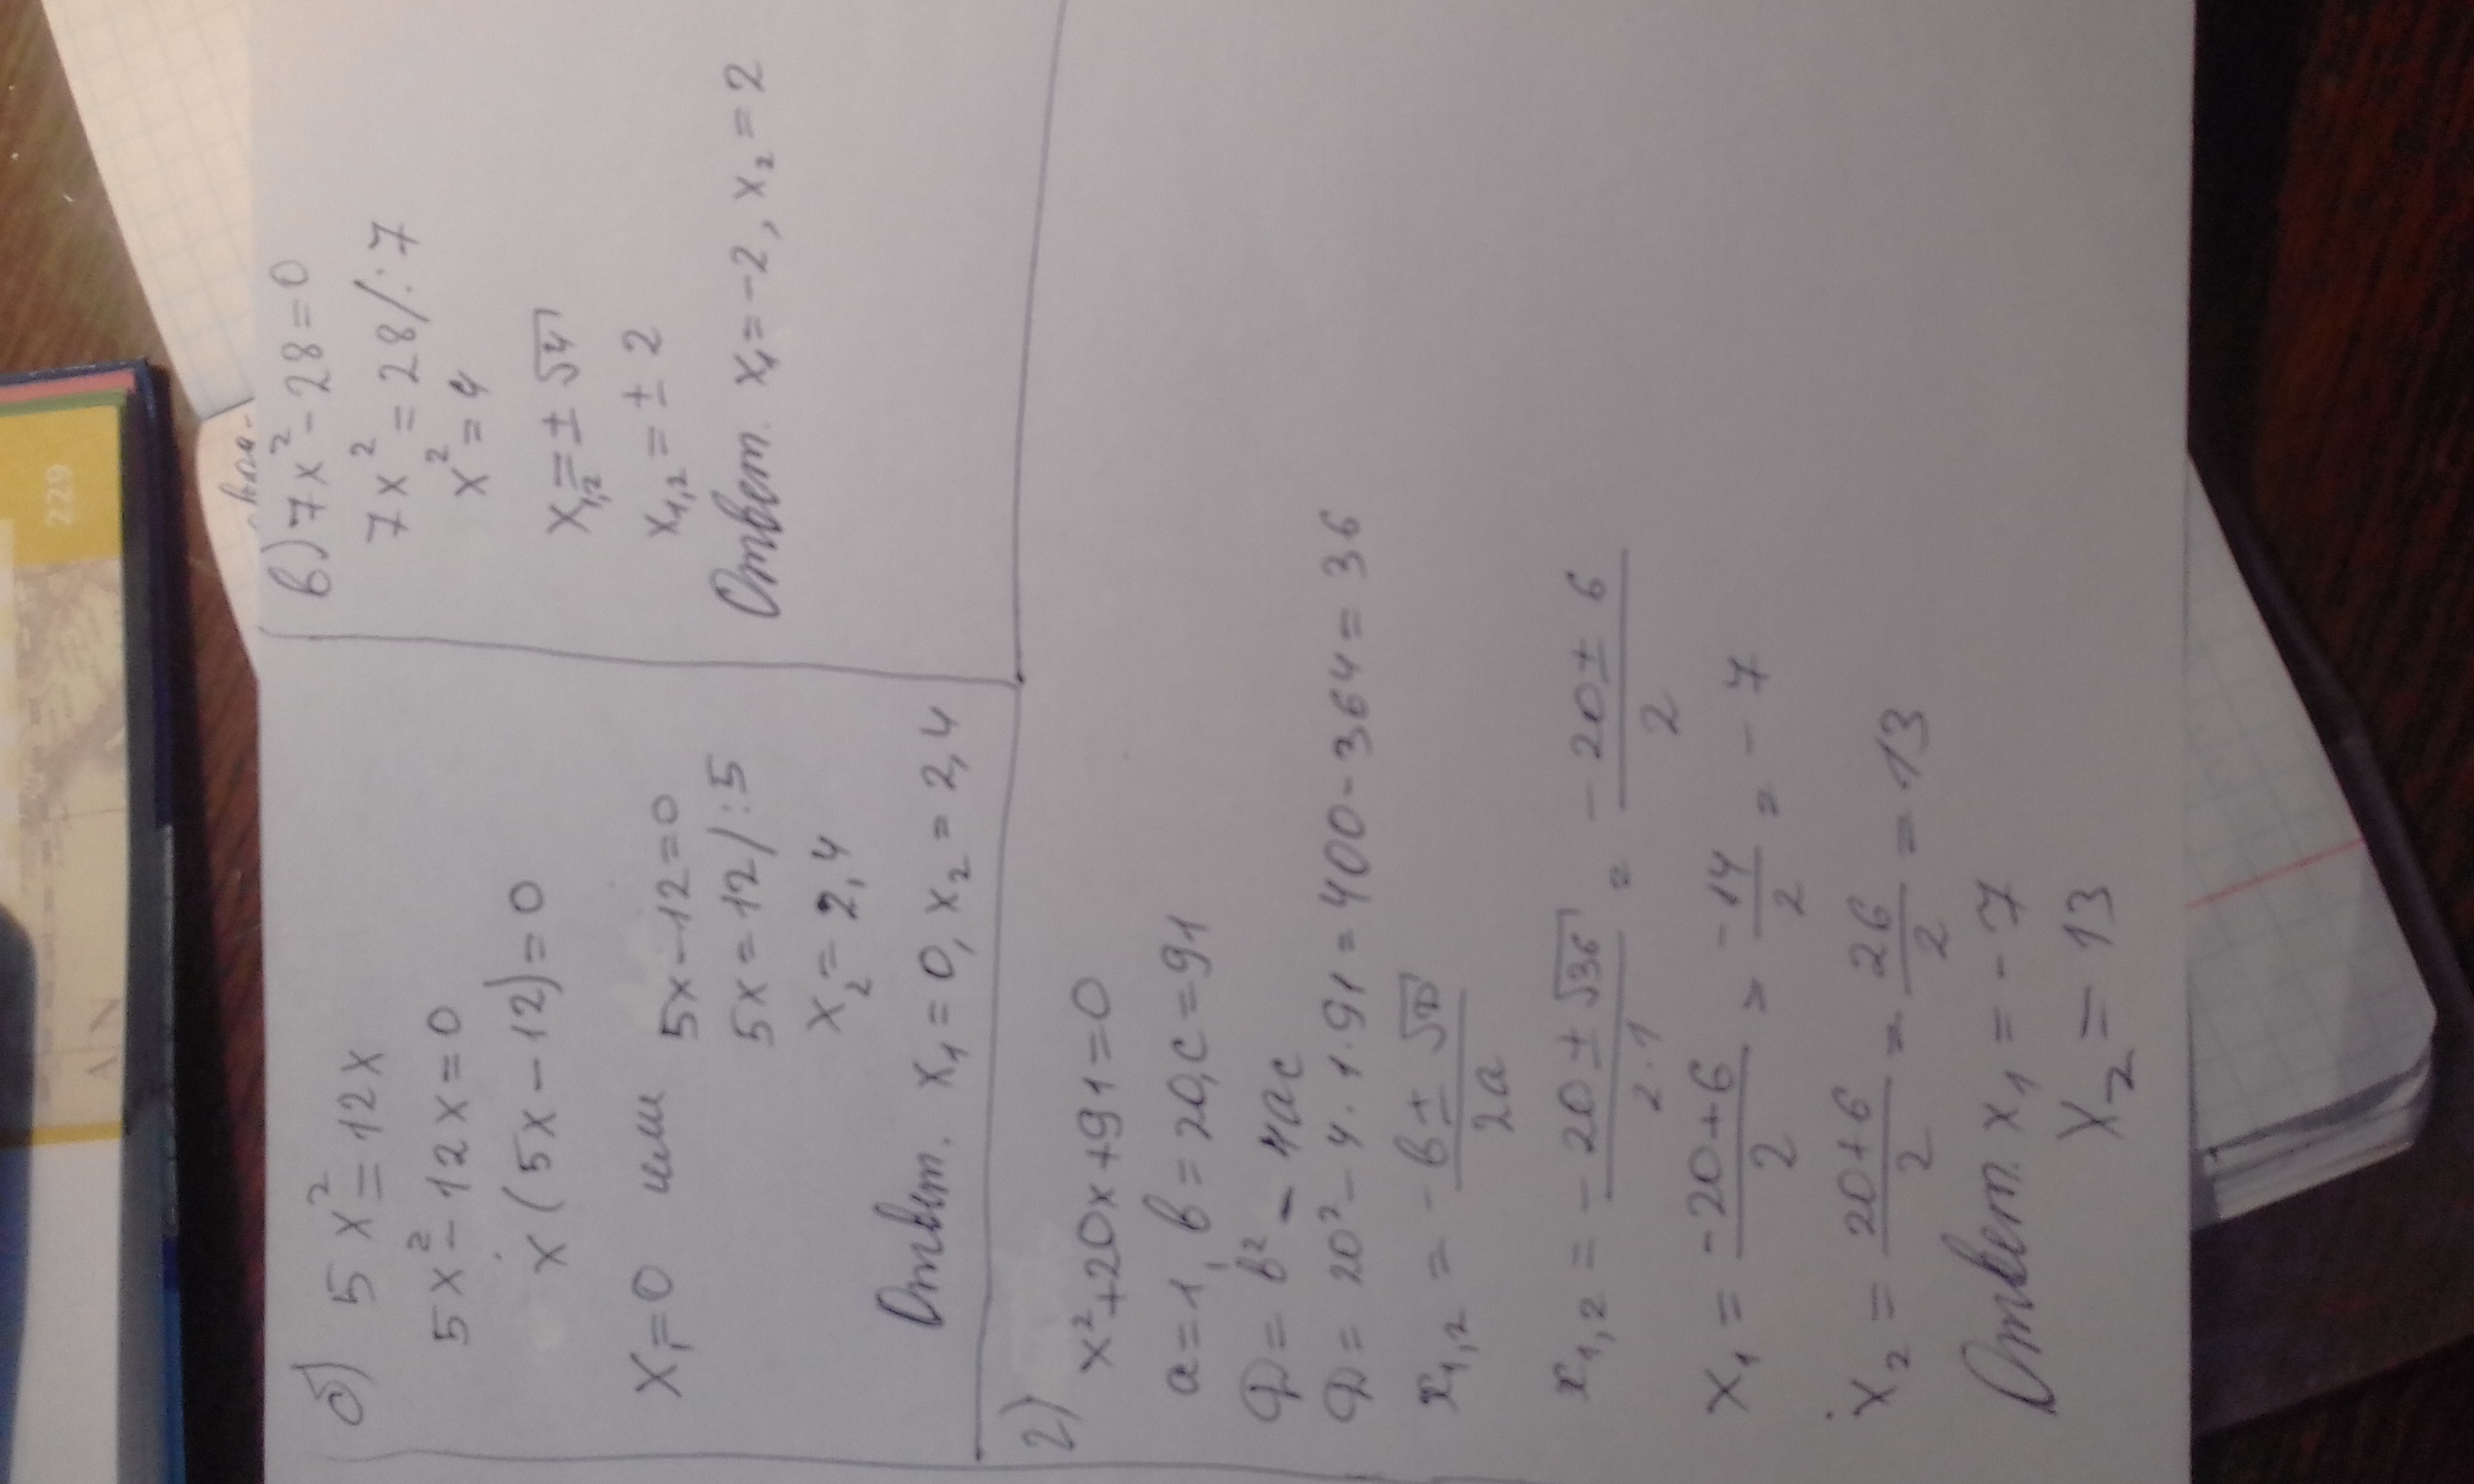 б) 5x² = 12x
5x² - 12x = 0
x(5x - 12) = 0
x₁ = 0 или 5x - 12 = 0
5x = 12 / : 5
x₂ = 2,4
Ответ. x₁ = 0, x₂ = 2,4
в) 7x² - 28 = 0
7x² = 28 / : 7
x² = 4
x₁,₂ = ± √4
x₁,₂ = ± 2
Ответ. x₁ = -2, x₂ = 2
г)
x² + 20x + 91 = 0
a = 1, b = 20, c = 91
D = b² - 4ac
D = 20² - 4 · 1 · 91 = 400 - 364 = 36
x₁,₂ = - b ± √D / 2a
x₁,₂ = - 20 ± √36 / 2 · 1 = - 20 ± 6 / 2
x₁ = -20 + 6 / 2 = -14 / 2 = - 7
x₂ = 20 + 6 / 2 = 26 / 2 = 13
Ответ. x₁ = - 7
x₂ = 13
229